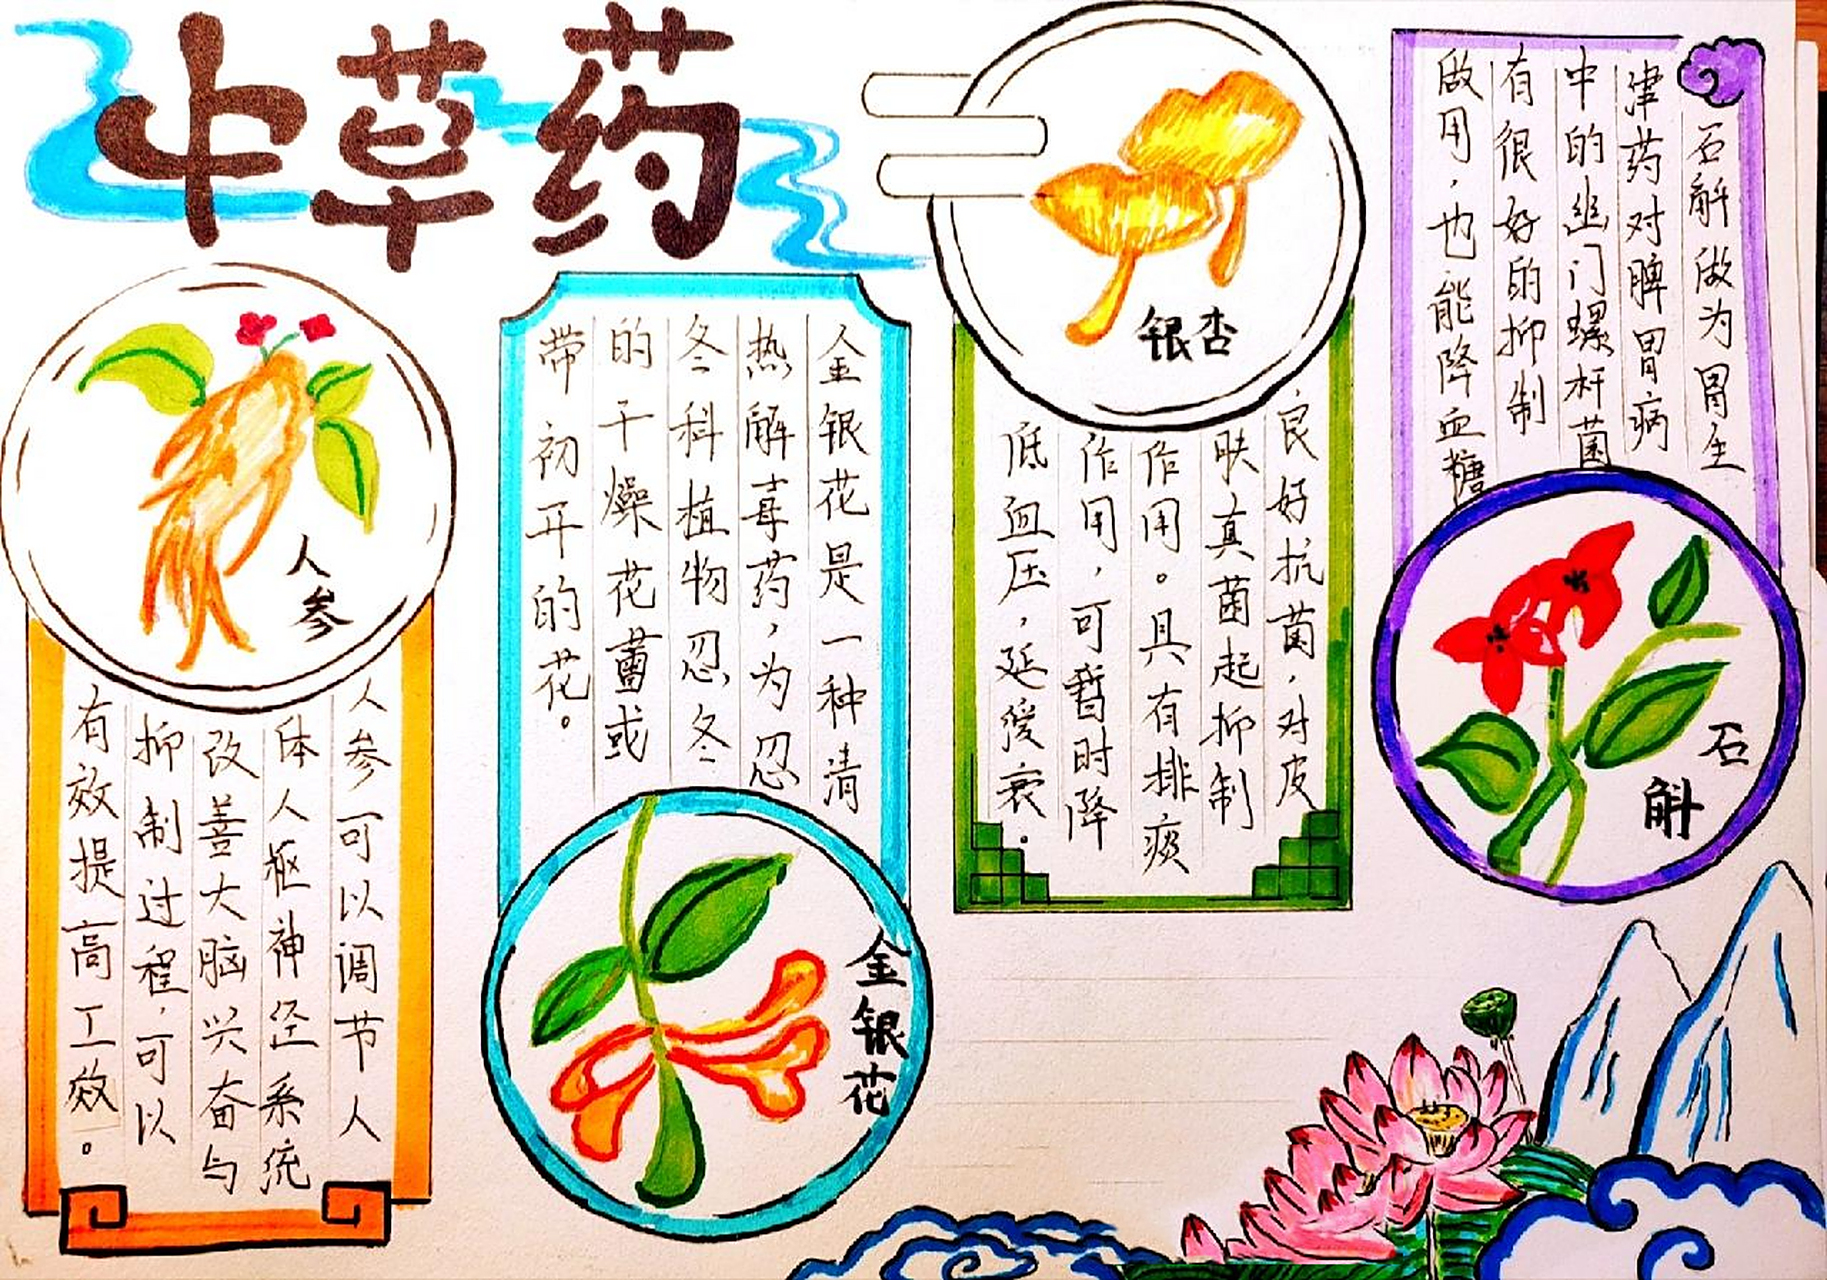 中草药
人参
人参可以调节人
体人枢神经系统
改善大脑兴奋与
抑制过程,可以
有效提高工效。
金银花是一种清
热解毒药,为忍
冬科植物忍冬
的干燥花蕾或
带初开的花。
金银花
银杏
良好抗菌,对皮
肤真菌起抑制
作用。具有排痰
作用,可暂时降
低血压,延缓衰。
石斛做为胃生
津药对脾胃病
中的幽门螺杆菌
有很好的抑制
做用,也能降血糖
石斛